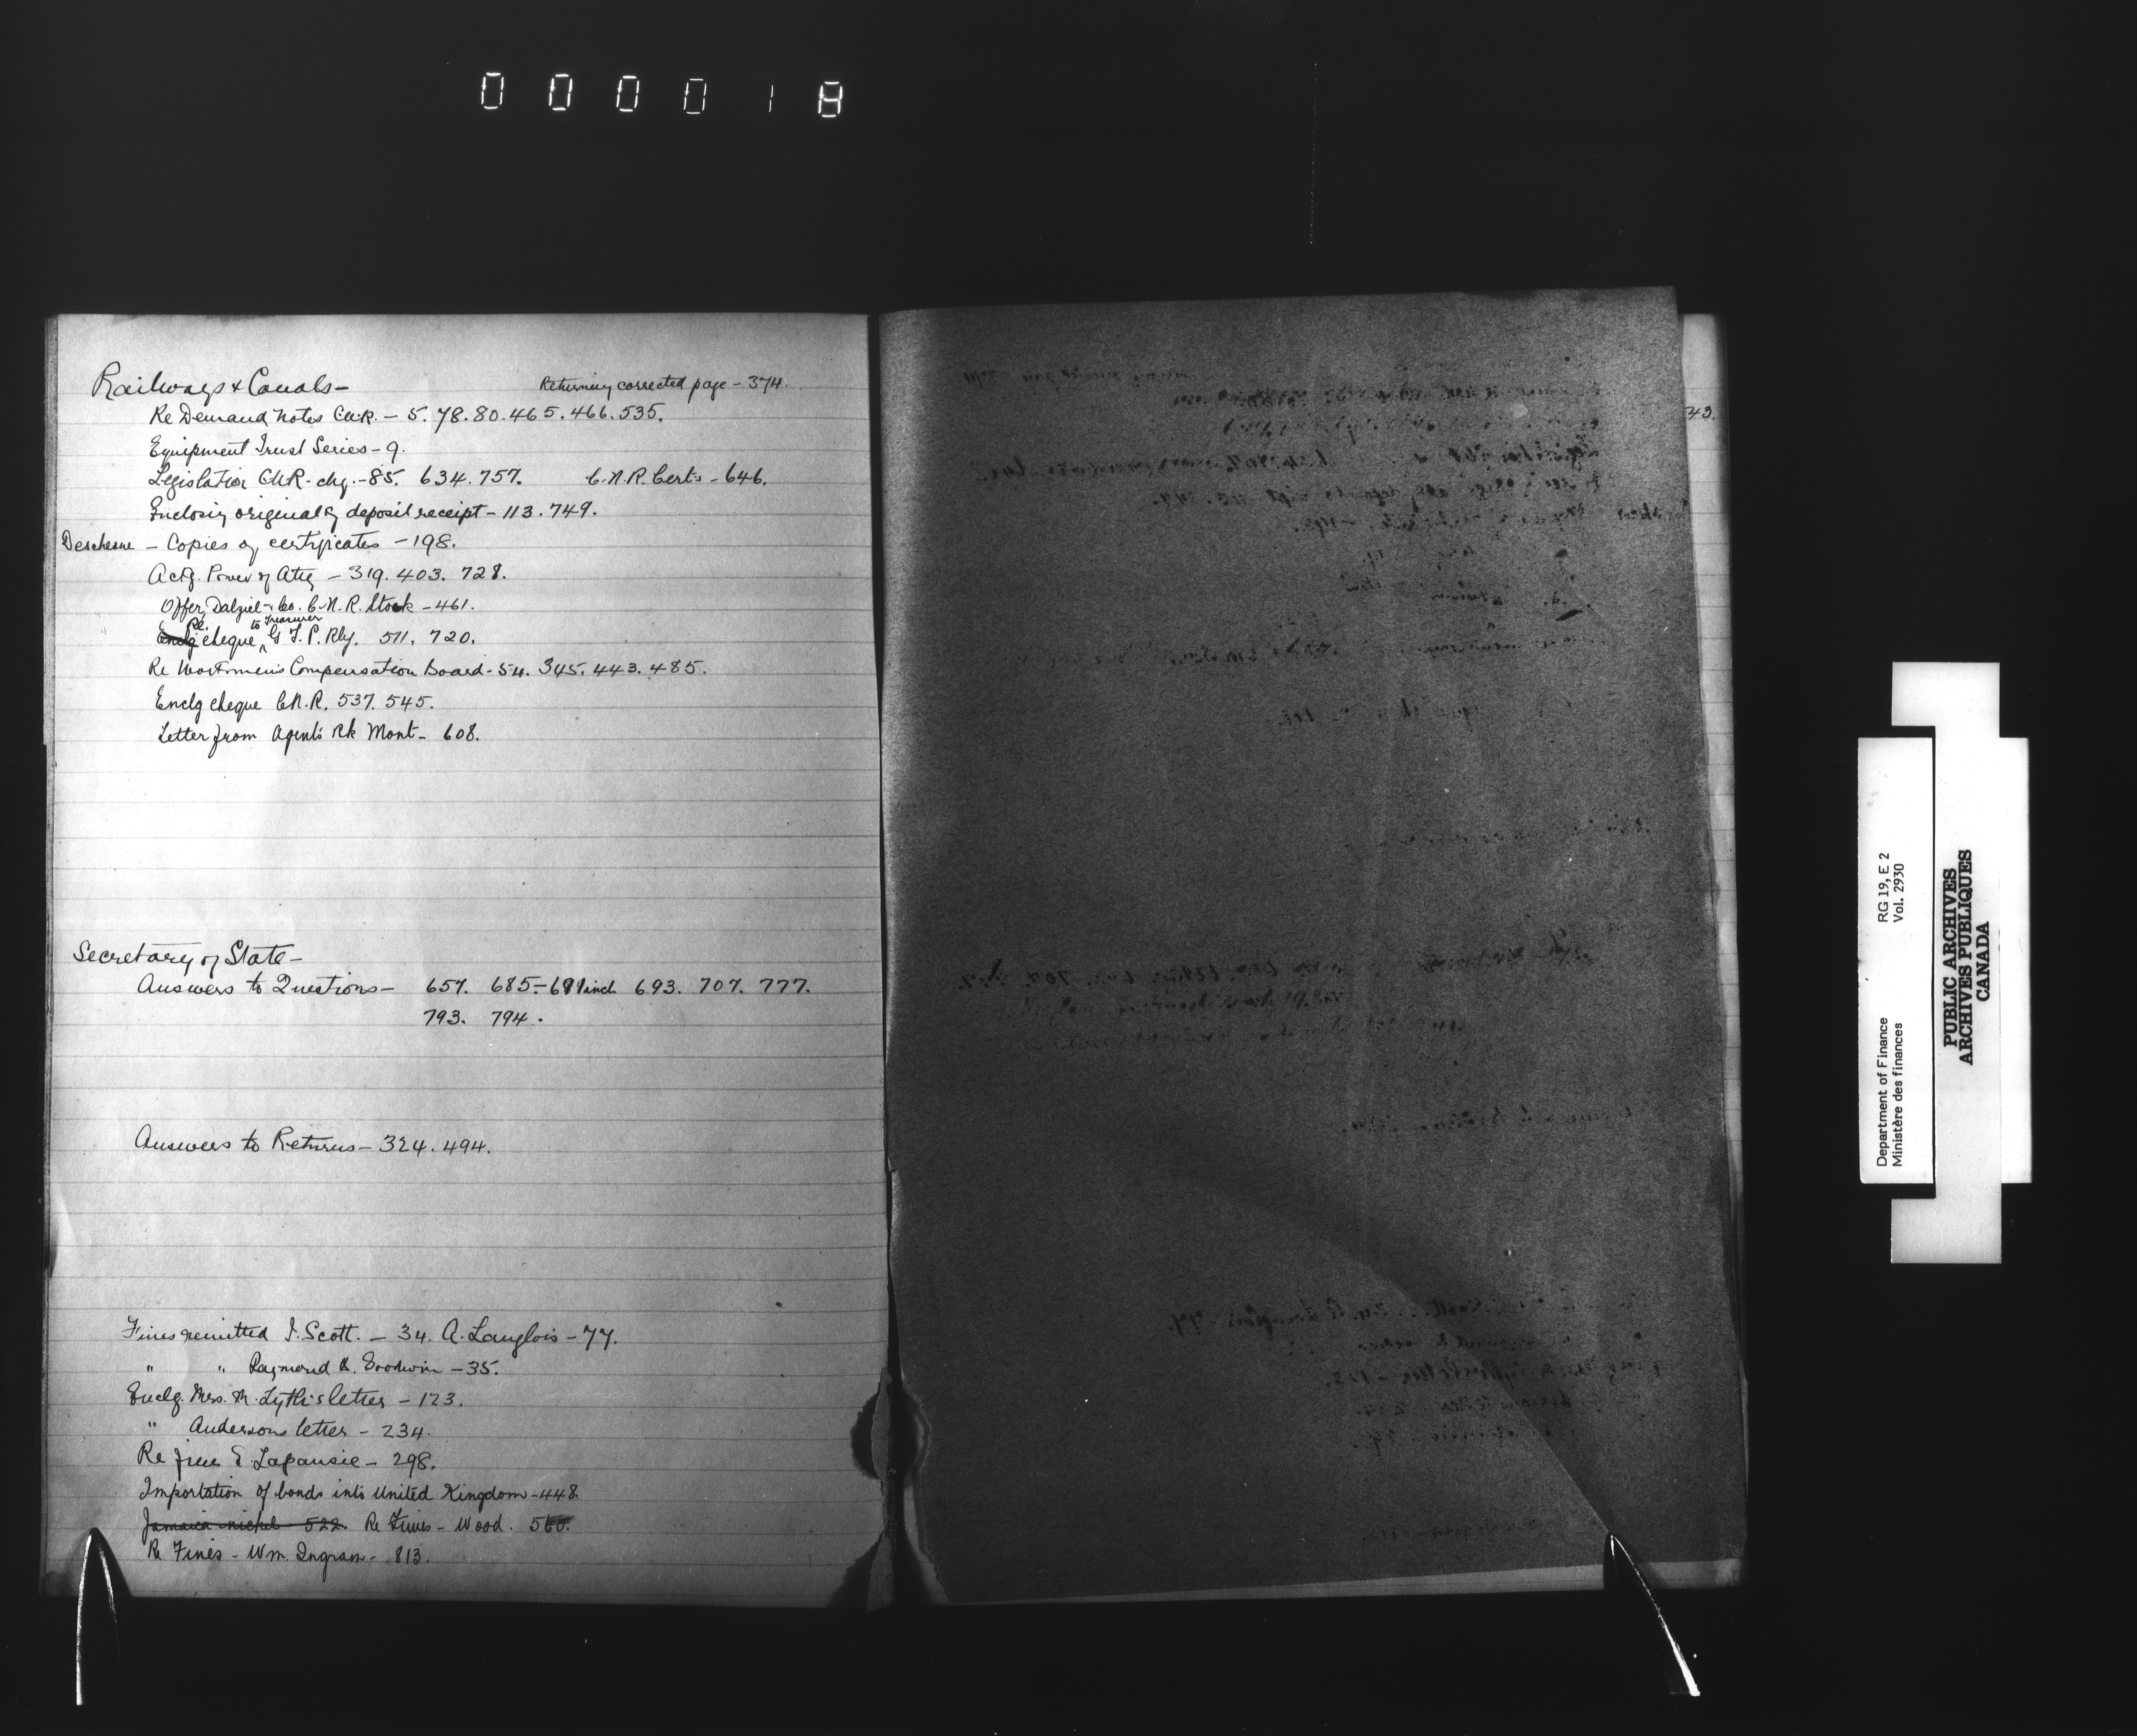 000018
Railways & Canals - Returning corrected page - 374.
Re Demand Notes C.N.R. - 5. 78. 80. 465. 466. 535.
Equipment Trust Series - 9.
Legislation CNR. chg. - 85. 634. 757. C.N.R. Certs - 646.
Enclosing original of deposit receipt - 113. 749.
Deschesne - Copies of certificates - 198.
Actg. Power of Atty - 319. 403. 728.
Offer, Dalziel & Co. C.N.R. Stock - 461.
Enclg Re. cheque to Treasurer G T. P. Rly. 511. 720.
Re Workmen's Compensation Board - 54. 345. 443. 485.
Enclg cheque C.N.R. 537. 545.
Letter from Agents Bk Mont - 608.
Secretary of State -
Answers to Questions - 657. 685-691 incl. 693. 707. 777.
793. 794.
Answers to Returns - 324. 494.
Fines remitted J. Scott. - 34. A. Langlois - 77.
" " Raymond & Goodwin - 35.
Enclg. Mrs. M. letter - 123.
" Andersons letter - 234.
Re fine E. - 298.
Importation of bonds into United Kingdom - 448.
Jamaica nickel 522. Re Fines - Wood. 560.
Re Fines - Wm. Ingram - 813.
43.
Department of Finance RG 19, E 2
Ministère des finances Vol. 2930
PUBLIC ARCHIVES
ARCHIVES PUBLIQUES
CANADA